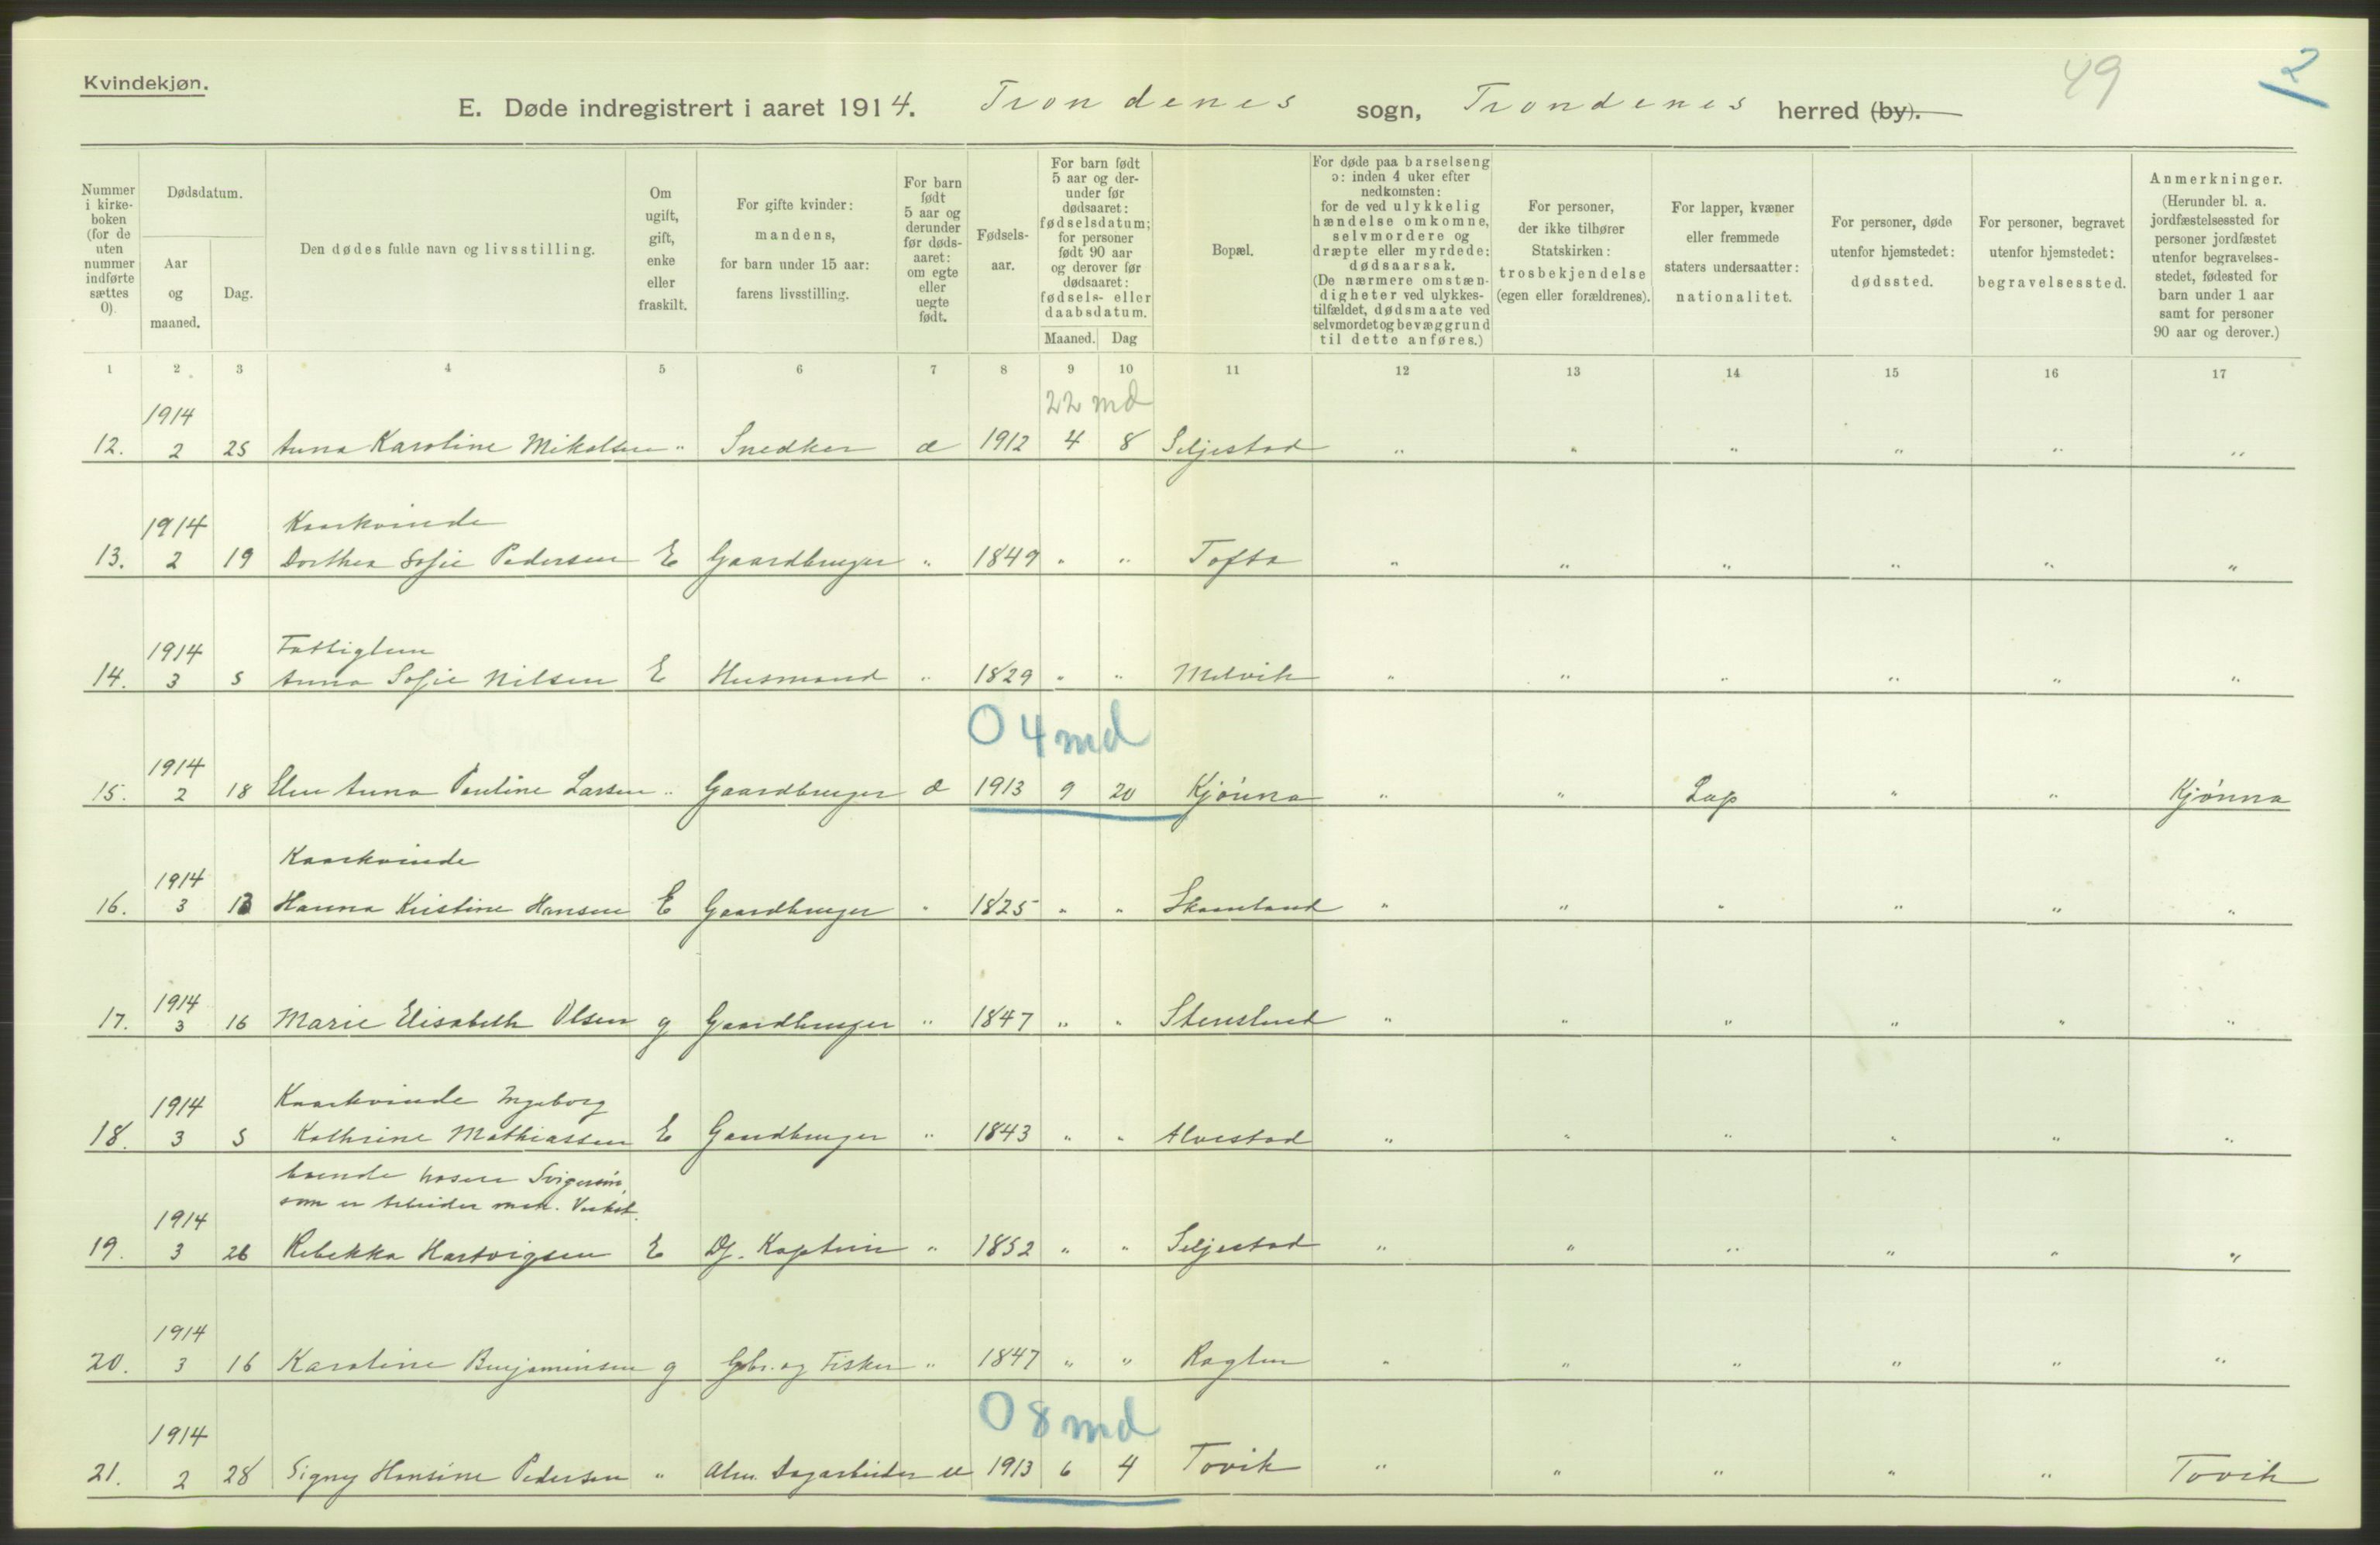 Kvindekjøn.
49
2
E. Døde indregistrert i aaret 1914. Trondenes sogn, Trondenes herred (by).
Nummer i kirke-boken (for de uten nummer indførte sættes 0).
Dødsdatum.
Aar og maaned.
Dag.
Den dødes fulde navn og livsstilling.
Om ugift, gift, enke eller fraskilt.
For gifte kvinder: mandens, for barn under 15 aar: farens livsstilling.
For barn født 5 aar og derunder før døds-aaret: om egte eller uegte født.
Fødsels-aar.
For barn født 5 aar og der-under før dødsaaret: fødselsdatum; for personer født 90 aar og derover før dødsaaret: fødsels- eller daabsdatum.
Maaned. Dag
Bopæl.
For døde paa barselseng ɔ: inden 4 uker efter nedkomsten: for de ved ulykkelig hændelse omkomne, selvmordere og dræpte eller myrdede: dødsaarsak. (De nærmere omstæn-digheter ved ulykkes-tilfældet, dødsmaate ved selvmordet og bevæggrund til dette anføres.)
For personer, der ikke tilhører Statskirken: trosbekjendelse (egen eller forældrenes).
For lapper, kvæner eller fremmede staters undersaatter: nationalitet.
For personer, døde utenfor hjemstedet: dødssted.
For personer, begravet utenfor hjemstedet: begravelsessted.
Anmerkninger. (Herunder bl. a. jordfæstelsessted for personer jordfæstet utenfor begravelses-stedet, fødested for barn under 1 aar samt for personer 90 aar og derover.)
1 2 3 4 5 6 7 8 9 10 11 12 13 14 15 16 17
1914 22 md
12. 2 25 Anna Karoline Mikalsen " Snedker æ 1912 4 8 Seljestad " " " " " "
1914 Kaarkvinde
13. 2 19 Dorthea Sofie Pedersen E Gaardbruger " 1849 " " Tofta " " " " " "
1914 Fattiglem
14. 3 5 Anna Sofie Nilsen E Husmand " 1829 " " Melvik " " " " " "
1914 0 4 md
15. 2 18 Elen Anna Pauline Larsen " Gaardbruger æ 1913 9 20 Kjønna " " Lap " " Kjønna
1914 Kaarkvinde
16. 3 13 Hanna Kristine Hansen E Gaardbruger " 1825 " " Skaanland " " " " " "
1914
17. 3 16 Marie Elisabeth Olsen g Gaardbruger " 1847 " " " " " " " "
1914 Kaarkvinde Ingeborg
18. 3 5 Kathrine Mathiassen E Gaardbruger " 1843 " " Alvestad " " " " " "
boende hos Svigersøn,
1914 som er Arbeider mek. Verkst.
19. 3 26 Rebekka Hartvigsen E Kaptein " 1852 " " Seljestad " " " " " "
1914
20. 3 16 Karoline Benjaminsen g Gbr. og Fisker " 1847 " " " " " " " "
1914 0 8 md
21. 2 28 Signy Hansine Pedersen " Alm. Dagarbeider 1913 6 4 Tovik " " " " " Tovik